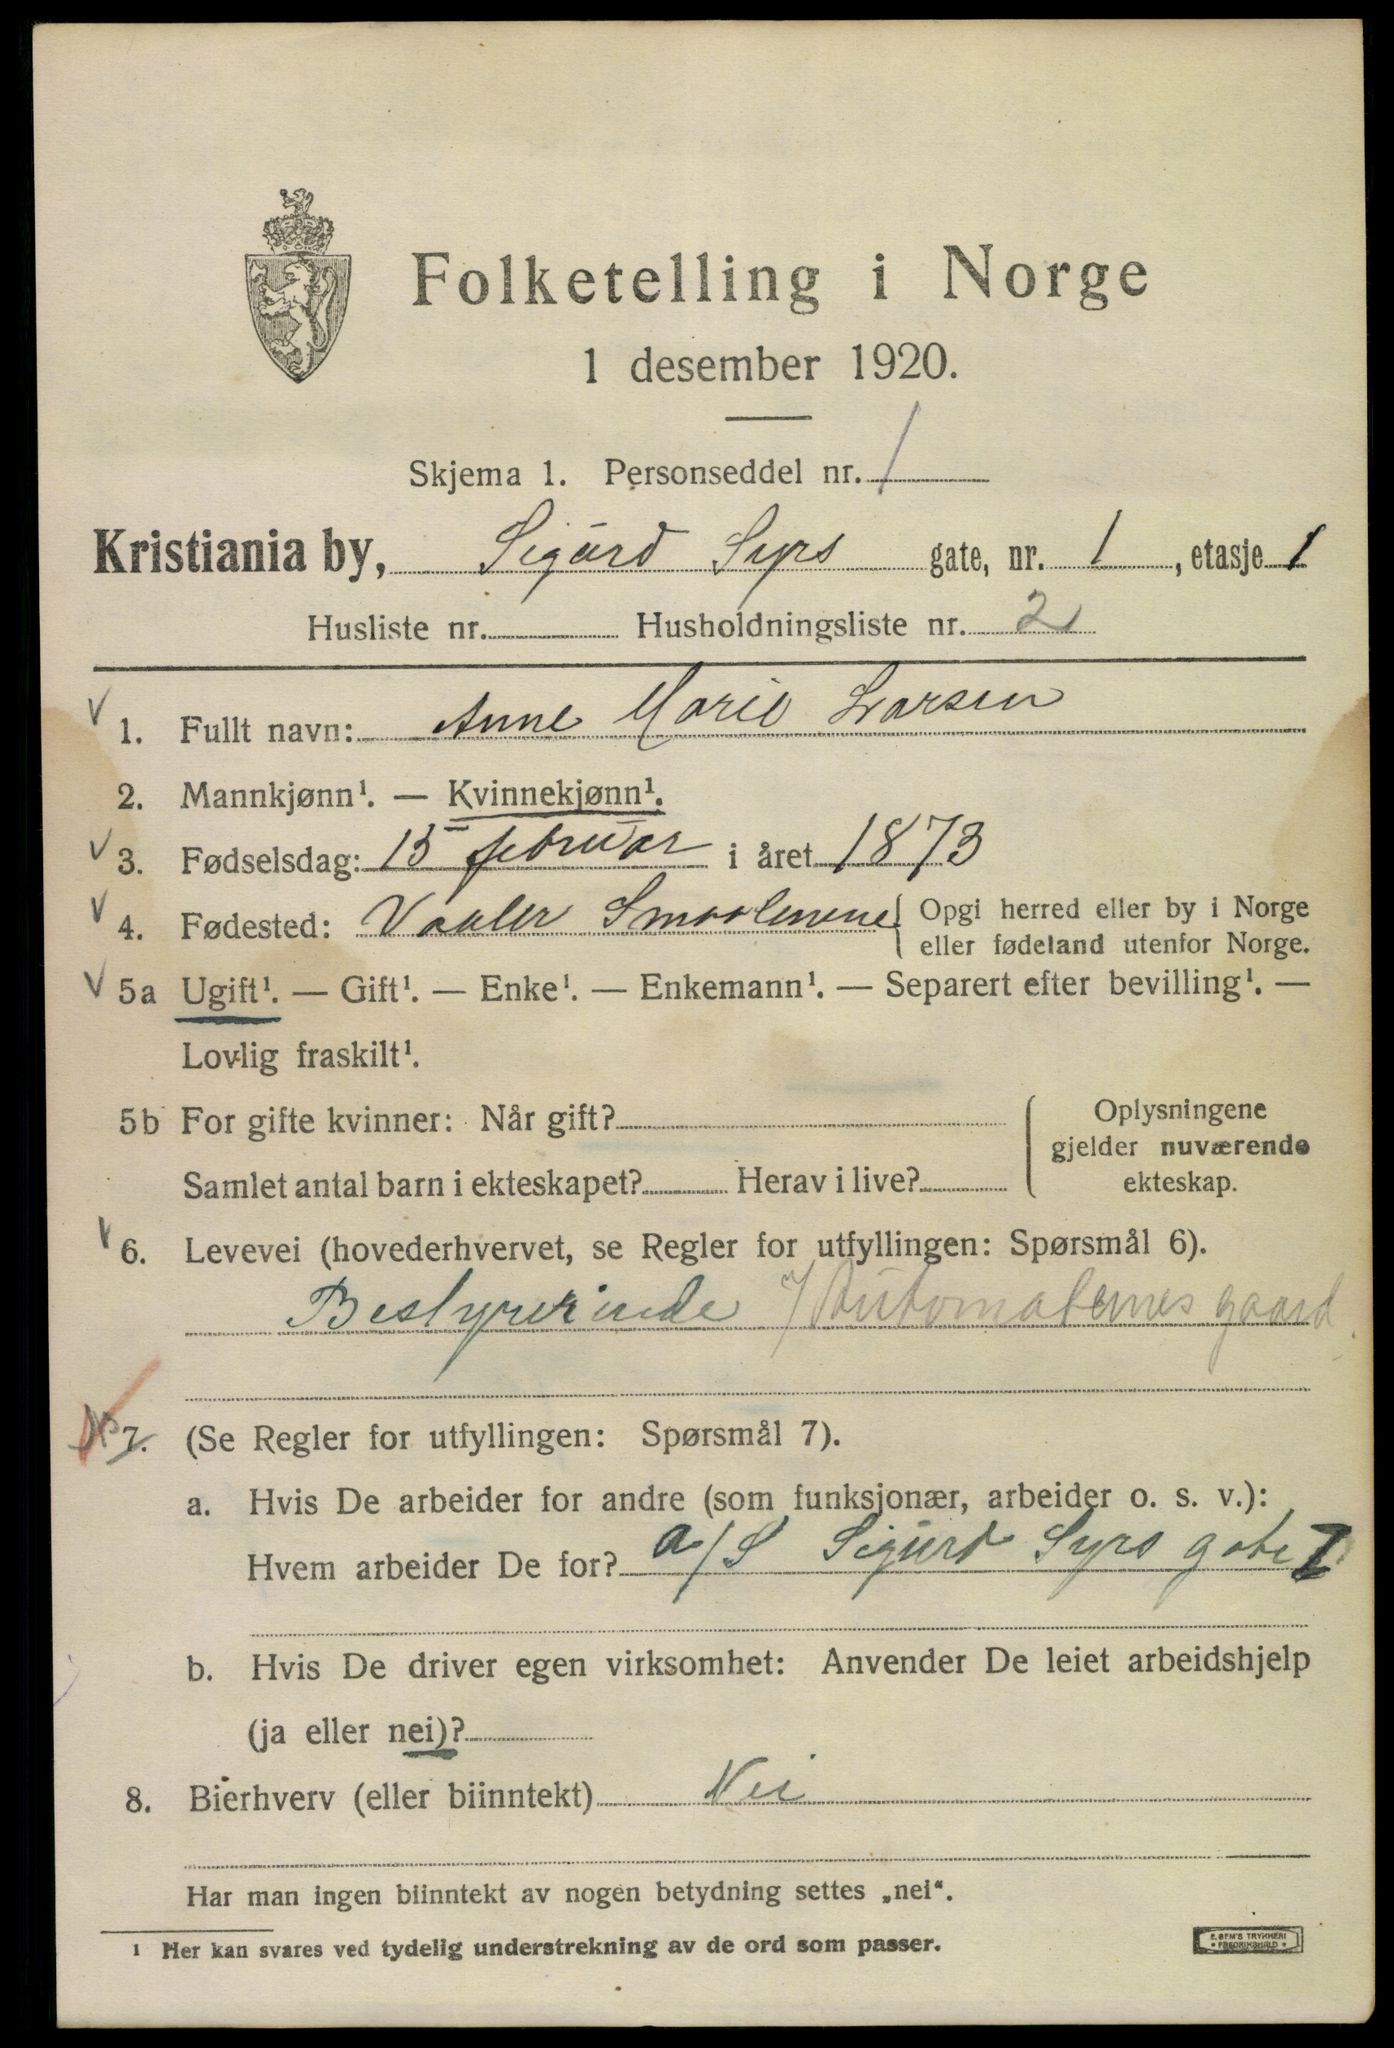 Folketelling i Norge
1 desember 1920.
Skjema 1. Personseddel nr. 1
Kristiania by, Sigurd Syrs gate, nr. 1, etasje 1
Husliste nr. Husholdningsliste nr. 2
1. Fullt navn: Anne Marie Larsen
2. Mannkjønn¹. — Kvinnekjønn¹.
3. Fødselsdag: 15 februar i året 1873
4. Fødested: Vaaler Smaalenene { Opgi herred eller by i Norge
eller fødeland utenfor Norge.
5a Ugift¹. — Gift¹. — Enke¹. — Enkemann¹. — Separert efter bevilling¹. —
Lovlig fraskilt¹.
5b For gifte kvinner: Når gift?
Samlet antal barn i ekteskapet? Herav i live?
Oplysningene
gjelder nuværende
ekteskap.
6. Levevei (hovederhvervet, se Regler for utfyllingen: Spørsmål 6).
Bestyrerinde / Automatenes gaard
7. (Se Regler for utfyllingen: Spørsmål 7).
a. Hvis De arbeider for andre (som funksjonær, arbeider o. s. v.):
Hvem arbeider De for? a/S Sigurd Syrs gate 1
b. Hvis De driver egen virksomhet: Anvender De leiet arbeidshjelp
(ja eller nei)?
8. Bierhverv (eller biinntekt) Nei
Har man ingen biinntekt av nogen betydning settes „nei“.
¹ Her kan svares ved tydelig understrekning av de ord som passer.
E. SEM'S TRYKKERI
FREDRIKSHALD